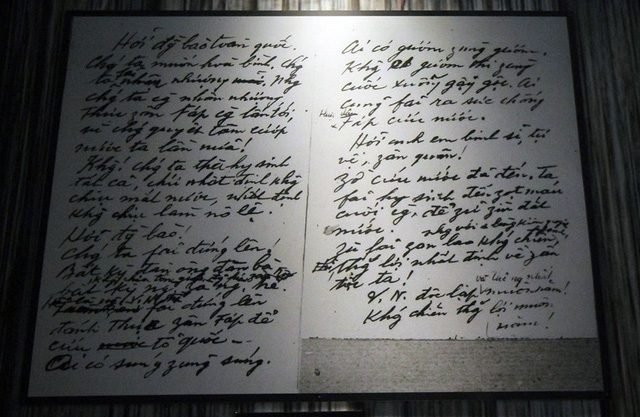 Hỡi đ̃g bào toàn quốc.
Chg ta muốn hoà bình, chg
ta đã nhân nhượng. Nhg
chg ta cg nhân nhượng
thực zân Fáp cg lấn tới,
vì chg quyết tâm cướp
nước ta lần nữa!
Khg! chg ta thà hy sinh
tất cả, chứ nhất định khg
chịu mất nước, nhất định
khg chịu làm nô lệ.
Hỡi đ̃g bào!
Chg ta fải đứng lên!
Bất kỳ đàn ông đàn bà
bất kỳ ng
fải đứng lên
đánh thực zân Fáp để
cứu tổ quốc –
Ai có súng zùng súng.
Ai có gươm zùng gươm.
Khg có gươm thì zùng
cuốc xuổng gậy gộc. Ai
cũng fải ra sức chống
Fáp cứu nước.
Hỡi anh em binh sĩ, tự
vệ, zân quân!
Zờ cứu nước đã đến, ta
fải hy sinh đến zọt máu
cuối cg, để zữ zìn đất
nước.
Zù fải zan lao khg chiến,
thg lợi nhất định về zân
tộc ta!
V. N. độc lập
và thống nhất
muôn năm!
Khg chiến thg lợi muôn
năm!